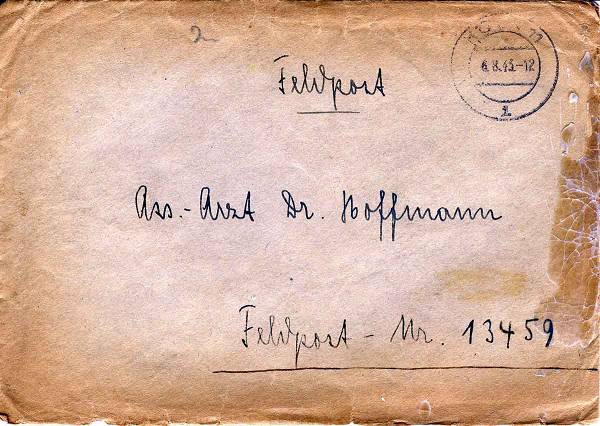 Feldpost
6.8.43.-12
Ass.-Arzt Dr. Hoffmann
Feldpost-Nr. 13459